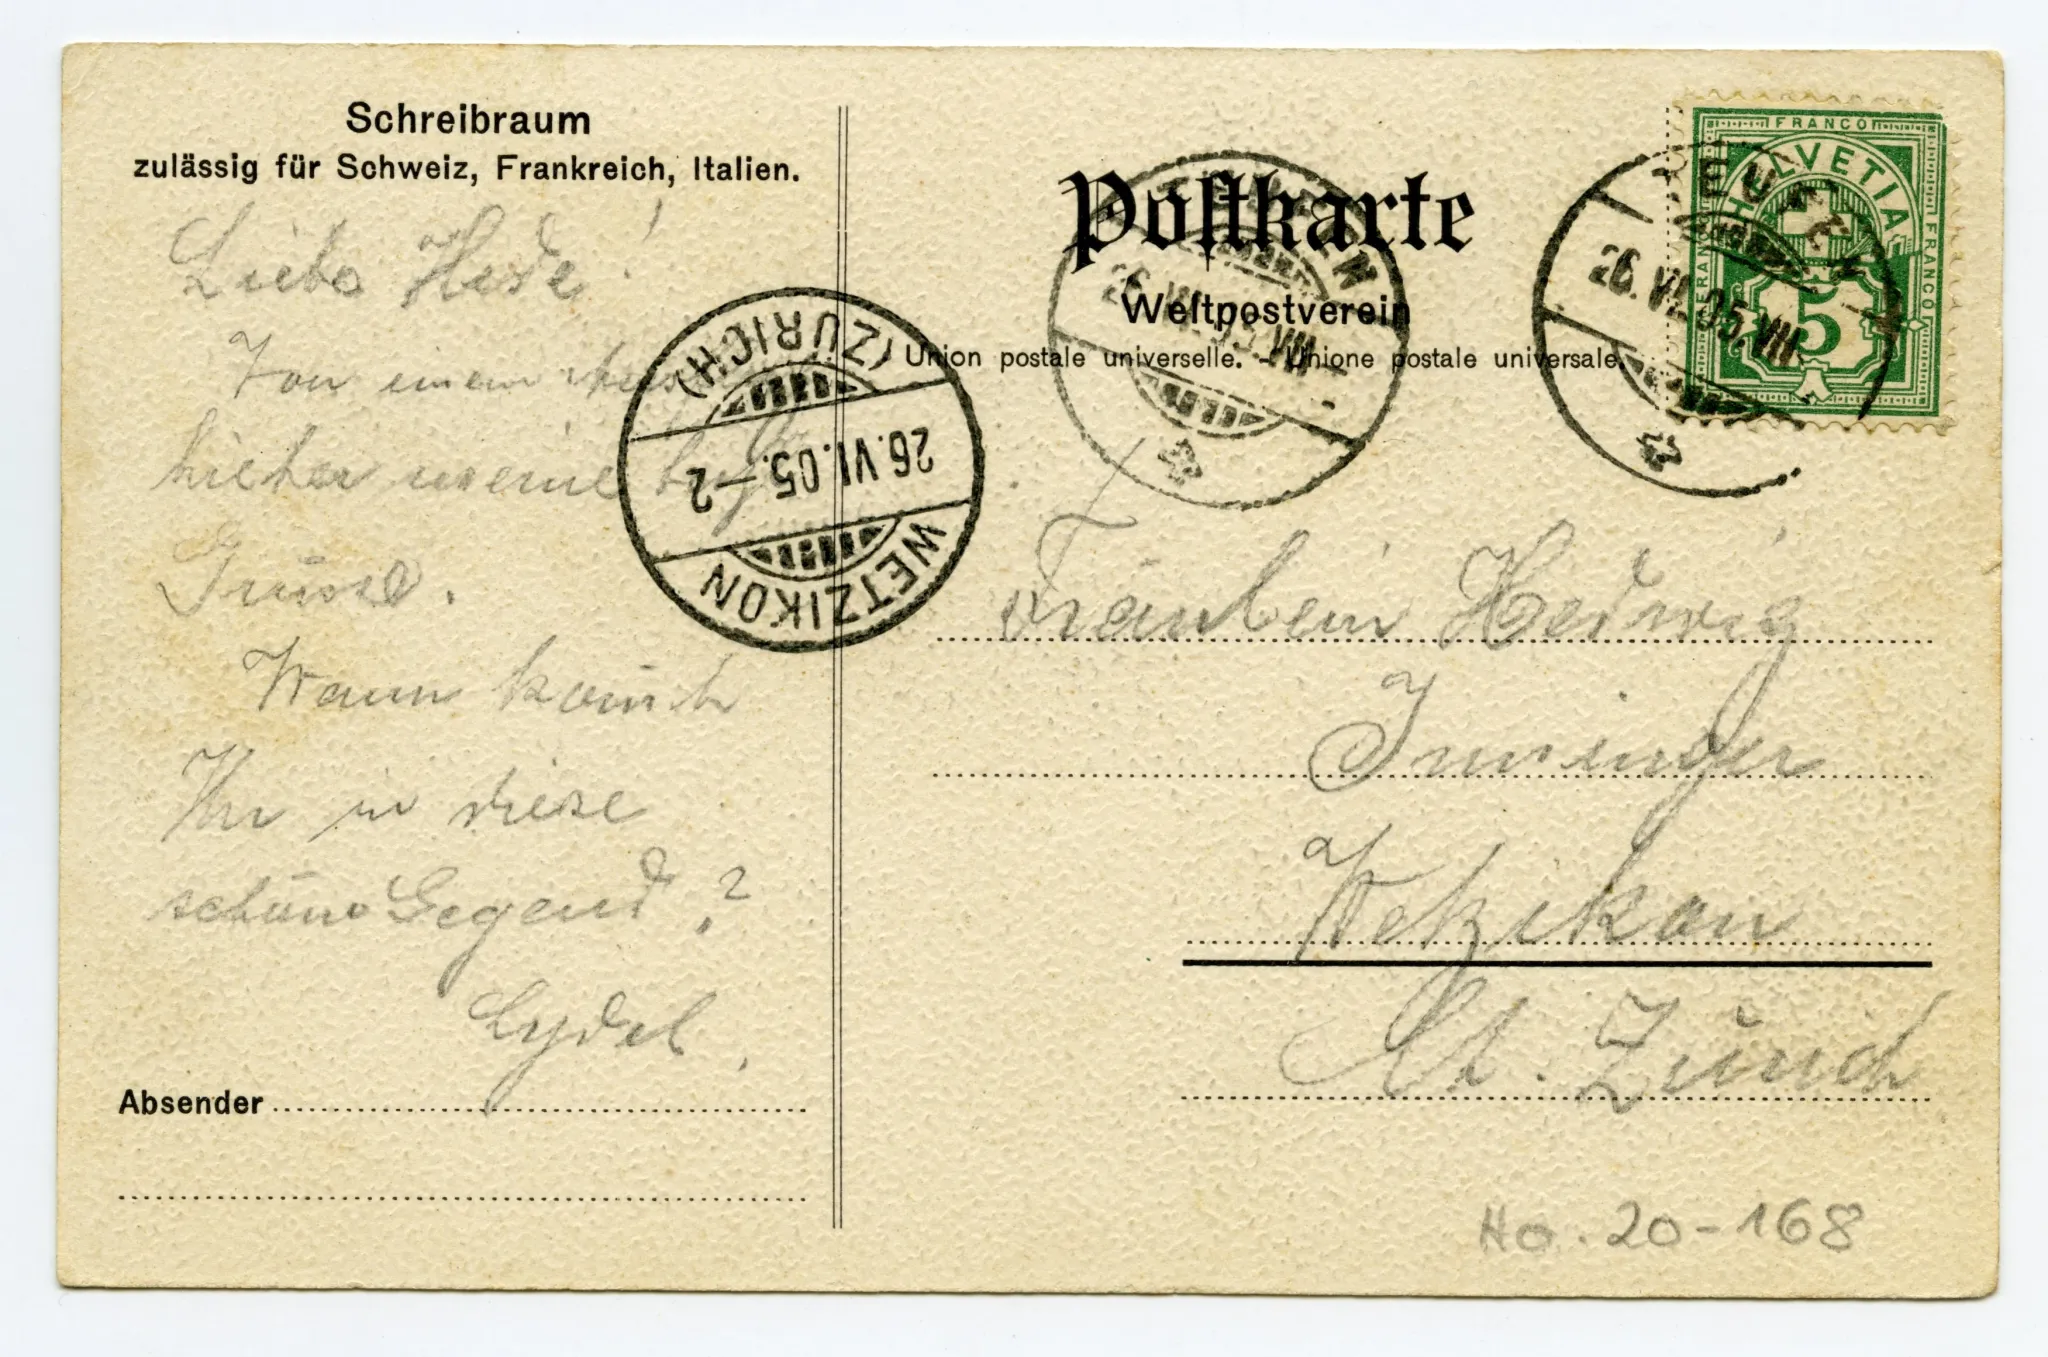 Schreibraum
zulässig für Schweiz, Frankreich, Italien.
Liebe Hede!
Von einem
hieher meine
Grüsse.
Wann kommt
Ihr in diese
schöne Gegend?
Lydel.
Absender
(ZÜRICH)
26.VI.05.-2
WETZIKON
Postkarte
Weltpostverein
Union postale universelle. – Unione postale universale.
26.VI.05.VIII
FRANCO
HELVETIA
FRANCO
FRANCO
5
26.VI.05.VIII
Fräulein Hedwig
Irminger
Wetzikon
Kt. Zürich
Ho. 20-168